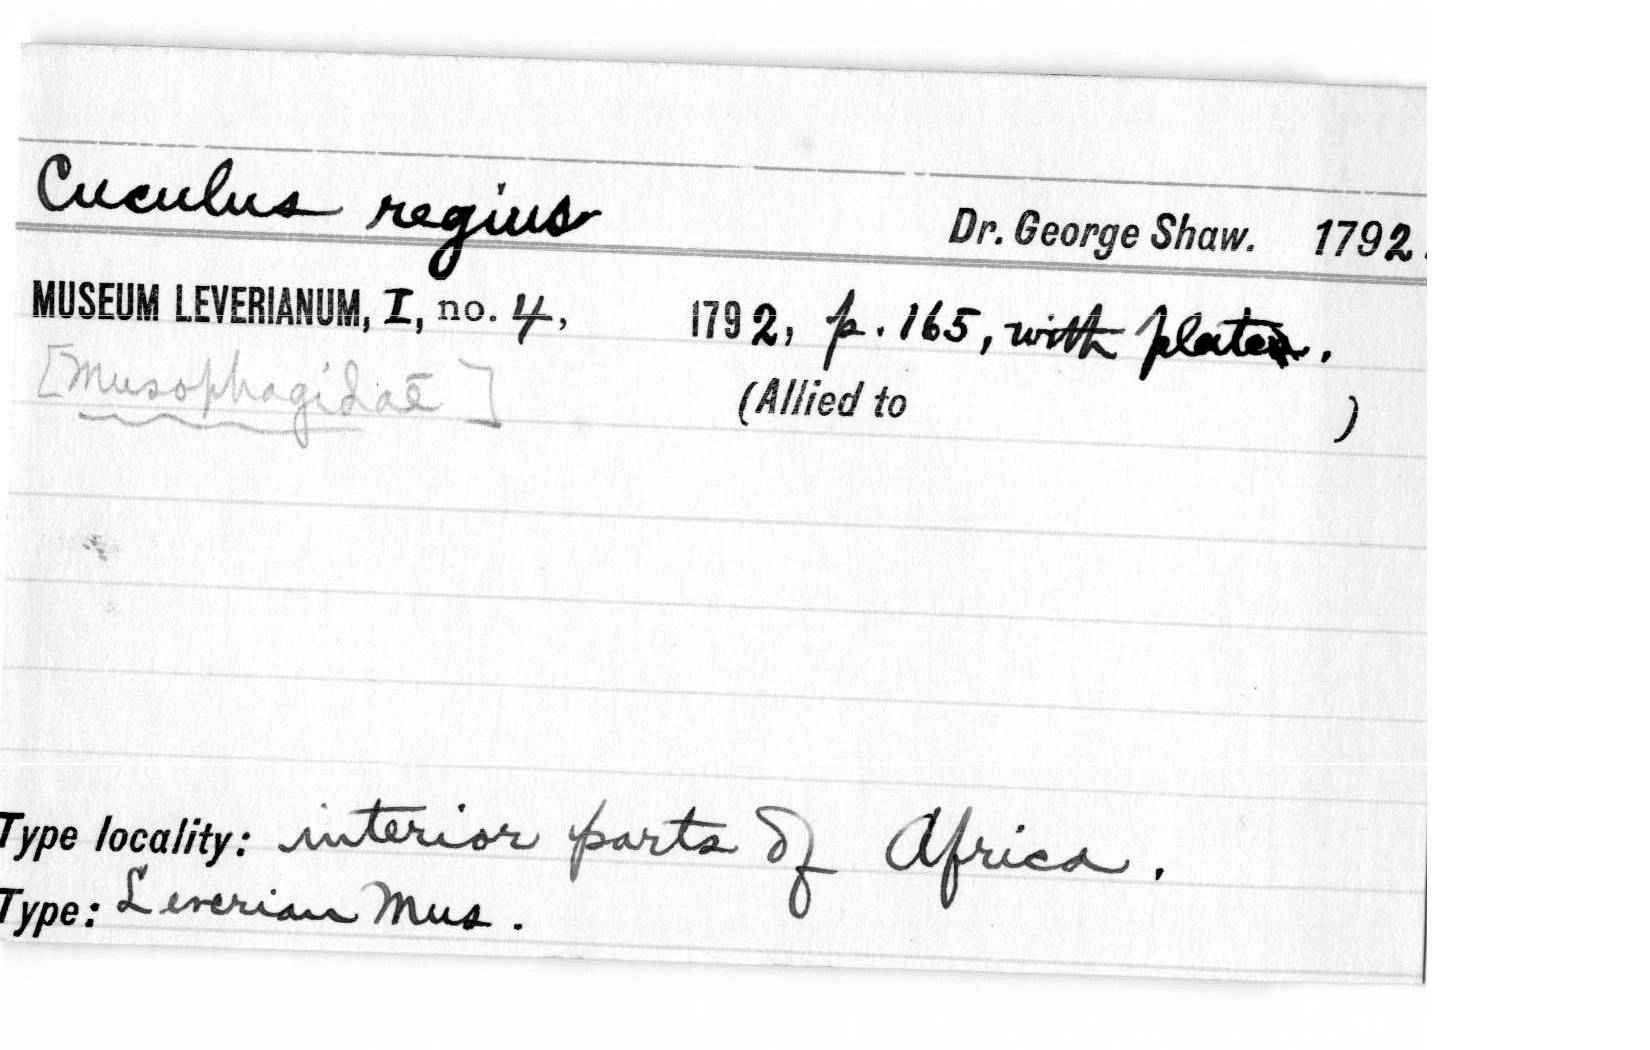 Cuculus regius Dr. George Shaw. 1792.
MUSEUM LEVERIANUM, I, no. 4, 1792, p. 165, with plate.
[Musophagidae] (Allied to )
Type locality: interior parts of Africa.
Type: Leverian Mus.